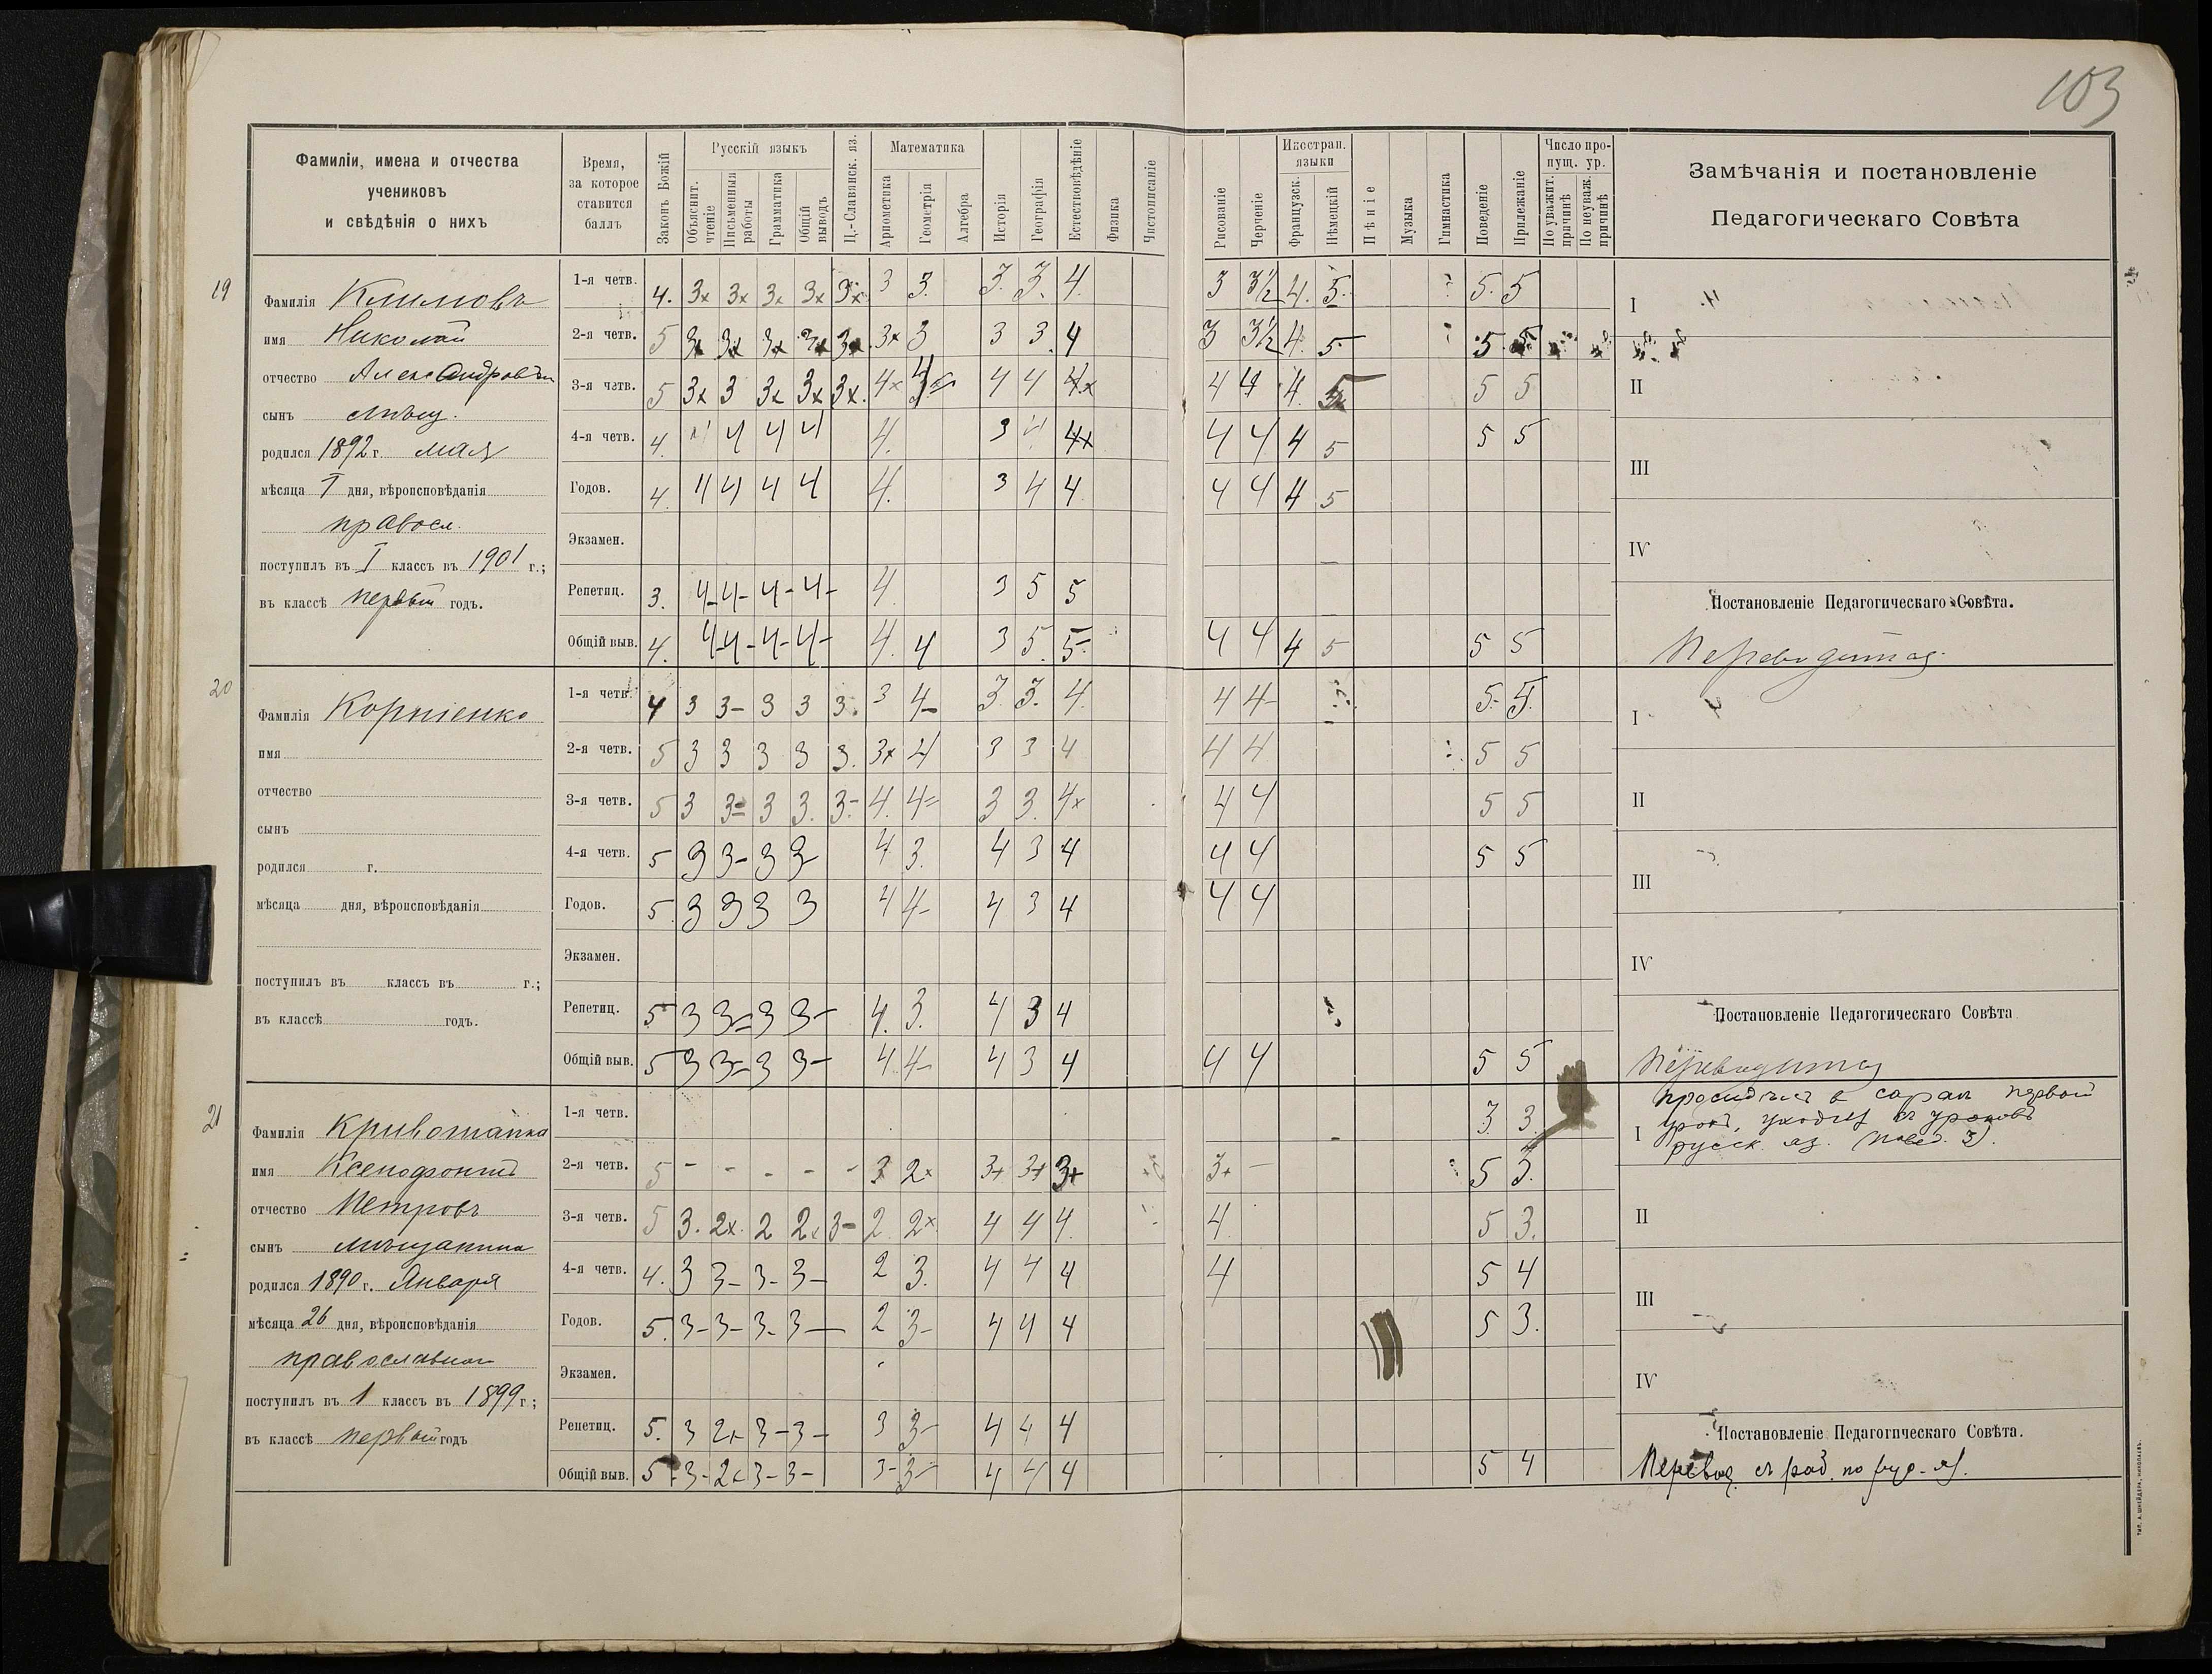 103
Фамиліи, имена и отчества
учениковъ
и свѣдѣнія о нихъ
Время,
за которое
ставится
баллъ
Законъ Божій
Русскій языкъ
Объяснит. чтеніе
Письменныя работы
Грамматика
Общій выводъ
Ц.-Славянск. яз.
Математика
Ариѳметика
Геометрія
Алгебра
Исторія
Географія
Естествовѣдѣніе
Физика
Чистописаніе
Рисованіе
Черченіе
Иностран. языки
Французск.
Нѣмецкій
Пѣніе
Музыка
Гимнастика
Поведеніе
Прилежаніе
Число пропущ. ур.
По уважит. причинѣ
По неуваж. причинѣ
Замѣчанія и постановленіе
Педагогическаго Совѣта
19
Фамилія Климовъ
имя Николай
отчество Александровъ
сынъ мѣщ.
родился 1892 г. мая
мѣсяца 1 дня, вѣроисповѣданія
правосл.
поступилъ въ I классъ въ 1901 г.;
въ классѣ первый годъ.
1-я четв. 4. 3x 3x 3x 3x 3x 3 3. 3. 3. 4. 3 3½ 4. 5. 5. 5
2-я четв. 5 3x 3x 3x 3x 3x 3x 3 3 3. 4 3 3½ 4. 5 5 5
3-я четв. 5 3x 3 3x 3x 3x. 4x 4 4 4x 4 4 4. 5 5 5
4-я четв. 4. 4 4 4 4 4. 3 4 4x 4 4 4 5 5 5
Годов. 4. 4 4 4 4 4. 3 4 4 4 4 4 5
Экзамен.
Репетиц. 3. 4- 4- 4- 4- 4. 3 5 5
Общій выв. 4. 4- 4- 4- 4- 4. 4 3 5. 5- 4 4 4 5 5 5
I
II
III
IV
Постановленіе Педагогическаго Совѣта.
Переводится.
20
Фамилія Корніенко
имя
отчество
сынъ
родился г.
мѣсяца дня, вѣроисповѣданія
поступилъ въ классъ въ г.;
въ классѣ годъ.
1-я четв. 4 3 3- 3 3 3. 3 4- 3. 3. 4. 4 4- 5. 5.
2-я четв. 5 3 3 3 3 3. 3x 4 3 3 4 4 4 5 5
3-я четв. 5 3 3= 3 3. 3- 4. 4= 3 3. 4x 4 4 5 5
4-я четв. 5 3 3- 3 3- 4 3. 4 3 4 4 4 5 5
Годов. 5 3 3 3 3 4 4- 4 3 4 4 4
Экзамен.
Репетиц. 5 3 3= 3 3- 4. 3. 4 3 4
Общій выв. 5 3 3= 3 3- 4 4- 4 3 4 4 4 5 5
I
II
III
IV
Постановленіе Педагогическаго Совѣта
Переводится
21
Фамилія Кривошапка
имя Ксенофонтъ
отчество Петровъ
сынъ мѣщанина
родился 1890 г. Января
мѣсяца 26 дня, вѣроисповѣданія
православнаго
поступилъ въ 1 классъ въ 1899 г.;
въ классѣ первый годъ
1-я четв. 3. 3.
2-я четв. 5 - - - - - 3 2x 3+ 3+ 3+ 3+ - 5 3.
3-я четв. 5 3. 2x. 2 2x 3- 2 2x 4 4 4. 4. 5 3.
4-я четв. 4. 3 3- 3- 3- 2 3. 4 4 4 4 5 4
Годов. 5. 3- 3- 3- 3- 2 3- 4 4 4 5 3.
Экзамен.
Репетиц. 5. 3 2x 3- 3- 3 3- 4 4 4
Общій выв. 5 3- 2x 3- 3- 3- 3- 4 4 4 5 4
просидѣлъ в сарае первый
I урокъ, уходилъ съ уроковъ
русск. яз. (повед. 3).
II
III
IV
Постановленіе Педагогическаго Совѣта.
Перевод. съ раб. по рус. яз.
ТИП. А. ШНЕЙДЕРА, НИКОЛАЕВЪ.